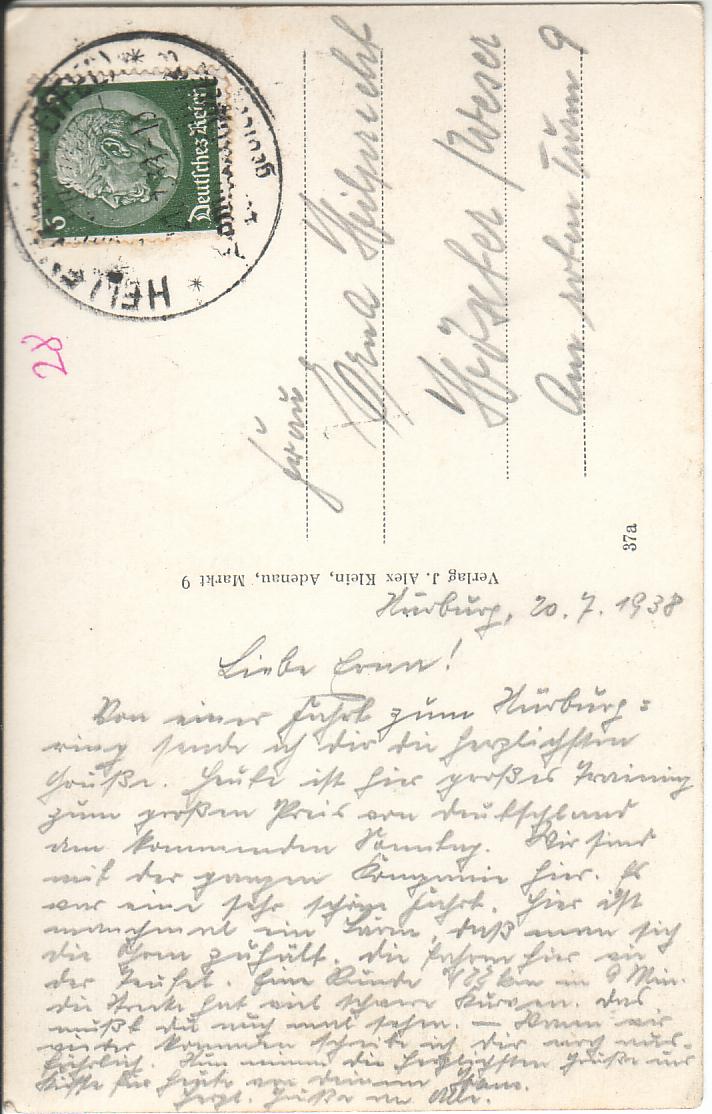 Deutsches Reich
HELLE
28
Frau
Erna Heilprecht
Höxter / Weser
Am roten Turm 9
37a
Verlag J. Alex Klein, Adenau, Markt 9
Nürburg, 20.7.1938
Liebe Erna!
Von einer Fahrt zum Nürburg=
ring sende ich dir die herzlichsten
Grüße. Heute ist hier großes Training
zum großen Preis von Deutschland
am kommenden Sonntag. Wir sind
mit der ganzen Kompanie hier. Es
war eine sehr schöne Fahrt. Hier ist
manchmal ein Lärm, daß man sich
die Ohren zuhält. Die fahren hier wie
der Teufel. Eine Runde km in 9 Min.
die Strecke hat viel schwere Kurven. Das
mußt du auch mal sehen. — Wenn wir
wieder kommen schreibe ich dir noch aus-
führlich. Nun nimm die herzlichsten Grüße und
Küsse für heute von deinem
Herzl. Grüße an Alle.